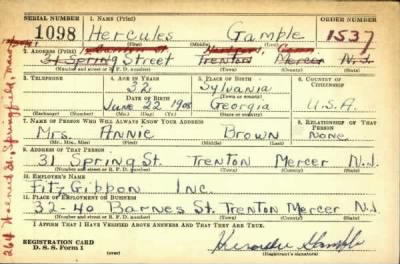 SERIAL NUMBER 1. NAME (Print) ORDER NUMBER
1098 Hercules Gample 1537
(First) (Middle) (Last)
2. ADDRESS (Print)
31 Spring Street Trenton Mercer N.J.
(Number and street or R. F. D. number) (Town) (County) (State)
3. TELEPHONE 4. AGE IN YEARS 5. PLACE OF BIRTH 6. COUNTRY OF CITIZENSHIP
32 Sylvania
DATE OF BIRTH (Town or county)
June 22 1908 Georgia U.S.A.
(Exchange) (Number) (Mo.) (Day) (Yr.) (State or country)
7. NAME OF PERSON WHO WILL ALWAYS KNOW YOUR ADDRESS 8. RELATIONSHIP OF THAT PERSON
Mrs. Annie Brown None
(Mr., Mrs., Miss) (First) (Middle) (Last)
9. ADDRESS OF THAT PERSON
31 Spring St. Trenton Mercer N.J.
(Number and street or R. F. D. number) (Town) (County) (State)
10. EMPLOYER'S NAME
Fitz Gibbon Inc.
11. PLACE OF EMPLOYMENT OR BUSINESS
32-40 Barnes St. Trenton Mercer N.J.
(Number and street or R. F. D. number) (Town) (County) (State)
I AFFIRM THAT I HAVE VERIFIED ABOVE ANSWERS AND THAT THEY ARE TRUE.
REGISTRATION CARD
D. S. S. Form 1
Hercules Gample
(Registrant's signature)
Springfield, Mass